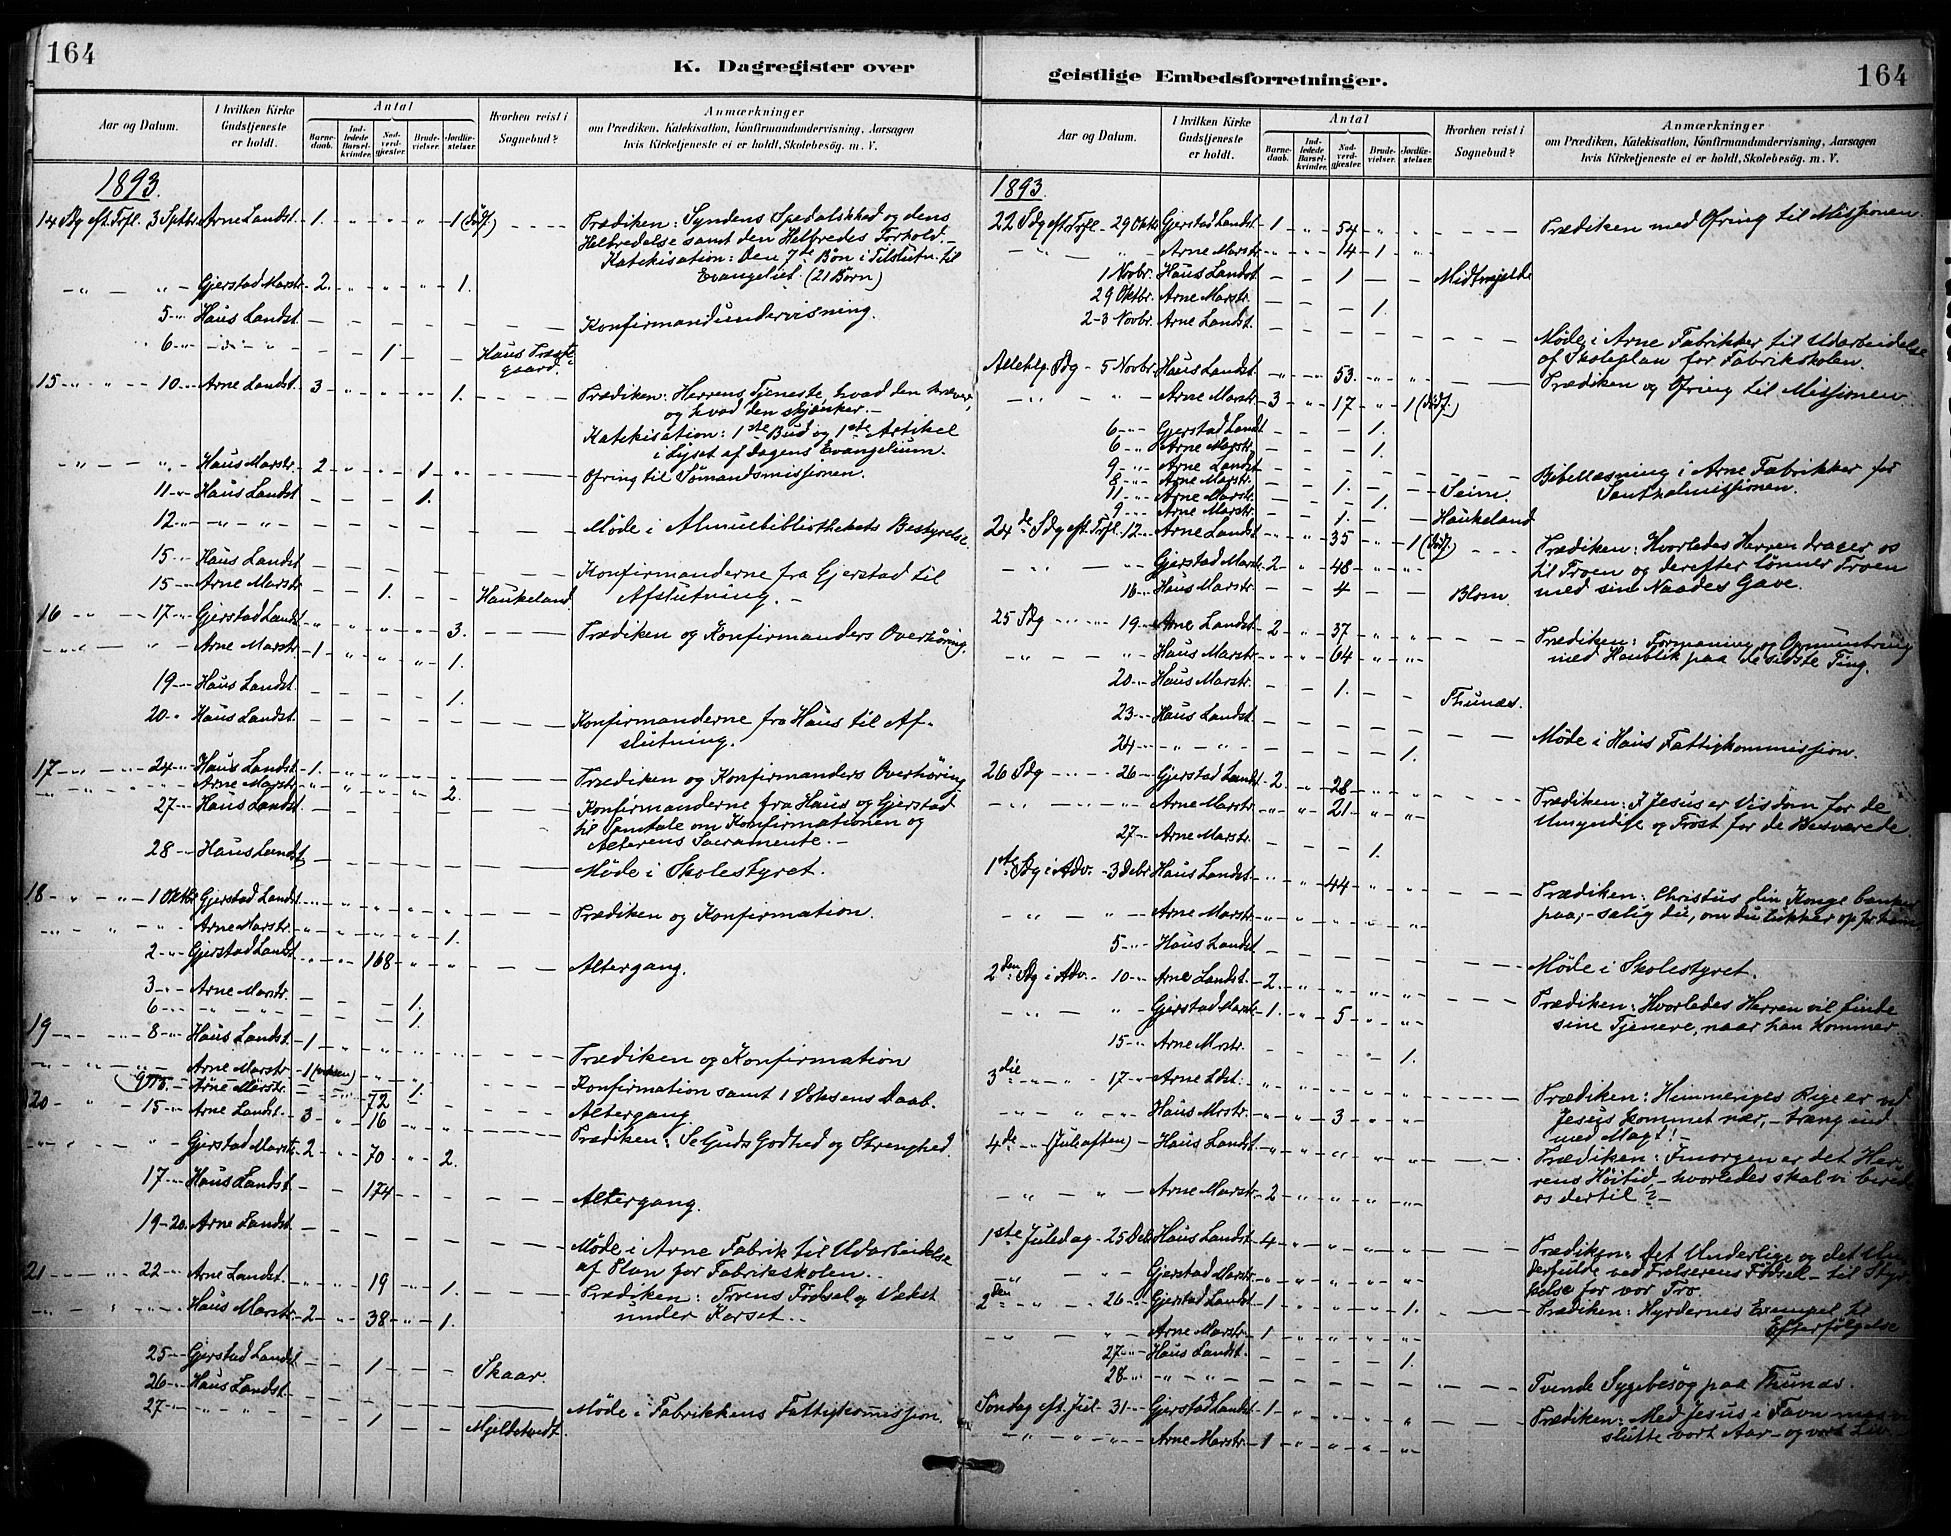 164
K. Dagregister over
Aar og Datum.
I hvilken Kirke Gudstjeneste er holdt.
Antal
Barne-daab.
Ind-ledede Barsel-kvinder.
Nad-verd-gjæster.
Brude-vielser.
Jordfæ-stelser.
Hvorhen reist i Sognebud?
Anmærkninger
om Prædiken, Katekisation, Konfirmandundervisning, Aarsagen
hvis Kirketjeneste ei er holdt, Skolebesøg. m. V.
1893.
14 Sdg eft. Trfl. 3 Septbr. Arne Landst. 1. " " " 1 (dødf.) Prædiken: Syndens Spedalskhed og dens
Helbredelse samt den Helbredes Forhold. –
Katekisation: Den 7de Bøn i Tilslutn. til
Evangeliet. (21 Børn)
" " Gjerstad Marstr. 2. " " " 1.
5 " Haus Landst. – – – – – Konfirmandundervisning.
6 " – do – " – – 1 – – Haus Præste-
gaard.
15 " " 10 " Arne Landst. 3 " " " 1. Prædiken: Herrens Tjeneste, hvad den kræver,
og hvad den skjænker. –
Katekisation: 1ste Bud og 1ste Artikel
i Lyset af dagens Evangelium.
" " Haus Marstr. 2 " " 1. " Ofring til Sømandsmissionen.
11 " Haus Landst. – – – 1. –
12 " – " – " – – – – – Møde i Almuebibliothekets Bestyrelse.
15 " Haus Landst. – – – – – Konfirmanderne fra Gjerstad til
Afslutning. –
15 " Arne Marstr. – – 1. – – Haukeland
16 " 17 " Gjerstad Landst. " " " " 3. Prædiken og Konfirmanders Overhøring.
" " Arne Marstr. 1 " " " 1.
19 " Haus Landst. – – – – 1.
20 " Haus Landst. – – – – – Konfirmanderne fra Haus til Af-
slutning.
17 " " 24 " Haus Landst. 1. " " " " Prædiken og Konfirmanders Overhøring
" " Arne Marstr. " " " " 2.
27 " Haus Landst. – – – – – Konfirmanderne fra Haus og Gjerstad
til Samtale om Konfirmationen og
Alterens Sacramente. –
28 " Haus Landst. – – – – – Møde i Skolestyret.
18 " " 1 Oktbr. Gjerstad Landst. " " " " " Prædiken og Konfirmation.
" " Arne Marstr. " " " " 1.
2 " Gjerstad Landst. " " 168 " " Altergang.
3 " Arne Marstr. – – – 1.
6 " " " – – – 1.
19 " " 8 " Haus Landst. 1 " " " " Prædiken og Konfirmation
" " Arne Marstr. 1 (voksen) " " " Konfirmation samt 1 Voksens Daab.
Arne Marstr. – – 72 1. – Altergang
20 " " 15 " Arne Landst. 3 " 16 " " Prædiken: Se Guds Godhed og Strenghed.
" " Gjerstad Marstr. 2 " 70 " 2.
17 " Haus Landst. – – 174 – – Altergang.
19–20. Arne Landst. – – – – – Møde i Arne Fabrik til Udarbeidelse
af Plan for Fabrikskolen.
21 " " 22 " Arne Landst. " " 19 " 1. Prædiken: Troens Fødsel og Vækst
under Korset.
" " Haus Marstr. 2 " 38 " 1.
25 " Gjerstad Landst. – – 1 – – Skaar.
26 " Haus Landst. – – – – – Møde i Fabrikkens Fattigkommission.
27 " " " " – – 1 – – Mjeldstvedt.
164
geistlige Embedsforretninger.
Aar og Datum.
I hvilken Kirke Gudstjeneste er holdt.
Antal
Barne-daab.
Ind-ledede Barsel-kvinder.
Nad-verd-gjæster.
Brude-vielser.
Jordfæ-stelser.
Hvorhen reist i Sognebud?
Anmærkninger
om Prædiken, Katekisation, Konfirmandundervisning, Aarsagen
hvis Kirketjeneste ei er holdt, Skolebesøg. m. V.
1893.
22 Sdg eft. Trfl. – 29 Oktbr. Gjerstad Landst. 1 " 54 " " Prædiken med Ofring til Missionen.
" " Arne Marstr. " " 14 1 "
1 Novbr. Haus Landst. – – 1 – – Midtmjelde
29 Oktbr. Arne Marstr. – – – 1.
2–3 Novbr. Arne Landst. – – – – – Møde i Arne Fabrikker til Udarbeidelse
af Skoleplan for Fabrikskolen.
Allehlg. Sdg – 5 Novbr. Haus Landst. " " 53. " " Prædiken og Ofring til Missionen.
" " Arne Marstr. 3 " 17 " 1 (dødf.)
6 " Gjerstad Landst. – – – 1.
6 " Arne Marstr. – – – 1.
9 " Arne Landst. – – – – – Bibellæsning i Arne Fabrikker for
Santhalmissionen.
8 " Arne Marstr. – – 1. – – Seim.
11 " Arne Marstr. – – – 1.
9 " Arne Marstr. – – 1. – – Haukeland
24de Sdg eft. Trfl. 12 " Arne Landst. " " 35 " 1 (dødf.) Prædiken: Hvorledes Herren drager os
til Troen og derefter lønner Troen
med sin Naades Gave.
" " Gjerstad Marstr. 2 " 48 " "
16 " Haus Marstr. – – 4 – – Blom.
25 Sdg " 19 " Arne Landst. 2 " 37 " " Prædiken: Formaning og Opmuntring
med Henblik paa de sidste Ting.
" " Haus Marstr. " " 64 " "
20 " Haus Marstr. – – 1. – – Thunæs.
23 " Haus Landst. – – – – – Møde i Haus Fattigkommission.
24 " " " – – – – 1.
26 Sdg " 26 " Gjerstad Landst. 2. " 28 " " Prædiken: I Jesus er Visdom for de
Umyndige og Trøst for de Besværede
" " Arne Marstr. " " 21 " "
27 " Arne Marstr. – – – 1.
1ste Sdg i Adv. – 3 Debr. Haus Landst. " " 44 " " Prædiken: Christus din Konge banker
paa, – salig du, om du lukker op for ham.
" " Arne Marstr. " " " " "
5 " Haus Landst. – – – – – Møde i Skolestyret.
2den Sdg i Adv. – 10 " Arne Landst. 2. " " " " Prædiken: Hvorledes Herren vil finde
sine Tjenere, naar han kommer
" " Gjerstad Marstr. 1. " 5 " "
15 " Arne Mrstr. – – – – 1.
3die " " 17 " Arne Ldst. " " " " " Prædiken: Himmeriges Rige er ved
Jesus kommet nær, – træng ind
med Magt! –
" " Haus Mrstr. " " 3 " "
4de " (Juleaften) – Haus Landst. " " " " " Prædiken: Imorgen er det Her-
rens Høitid – hvorledes skal vi berede
os dertil? –
" " Arne Marstr. 2 " " " "
1ste Juledag – 25 Debr. Haus Landst. 4 " " " " Prædiken: det Underlige og det Un-
derfulde ved Frelserens Fødsel – til Styr-
kelse for vor Tro.
" " Gjerstad Marstr. " " " " "
2den " " 26 " Gjerstad Landst. 1 " " " 1. Prædiken: Hyrdernes Exempel til
Efterfølgelse
" " Arne Marstr. 1 " " " "
27 " Haus Landst. – – – – 1.
28 " " " – – – – – Tvende Sygebesøg paa Thunæs.
Søndag eft. Jul – 31 " Gjerstad Landst. 1 " " " " Prædiken: Med Jesus i Favn maa vi
slutte vort Aar – og vort Liv.
" " Arne Marstr. 1 " " " "